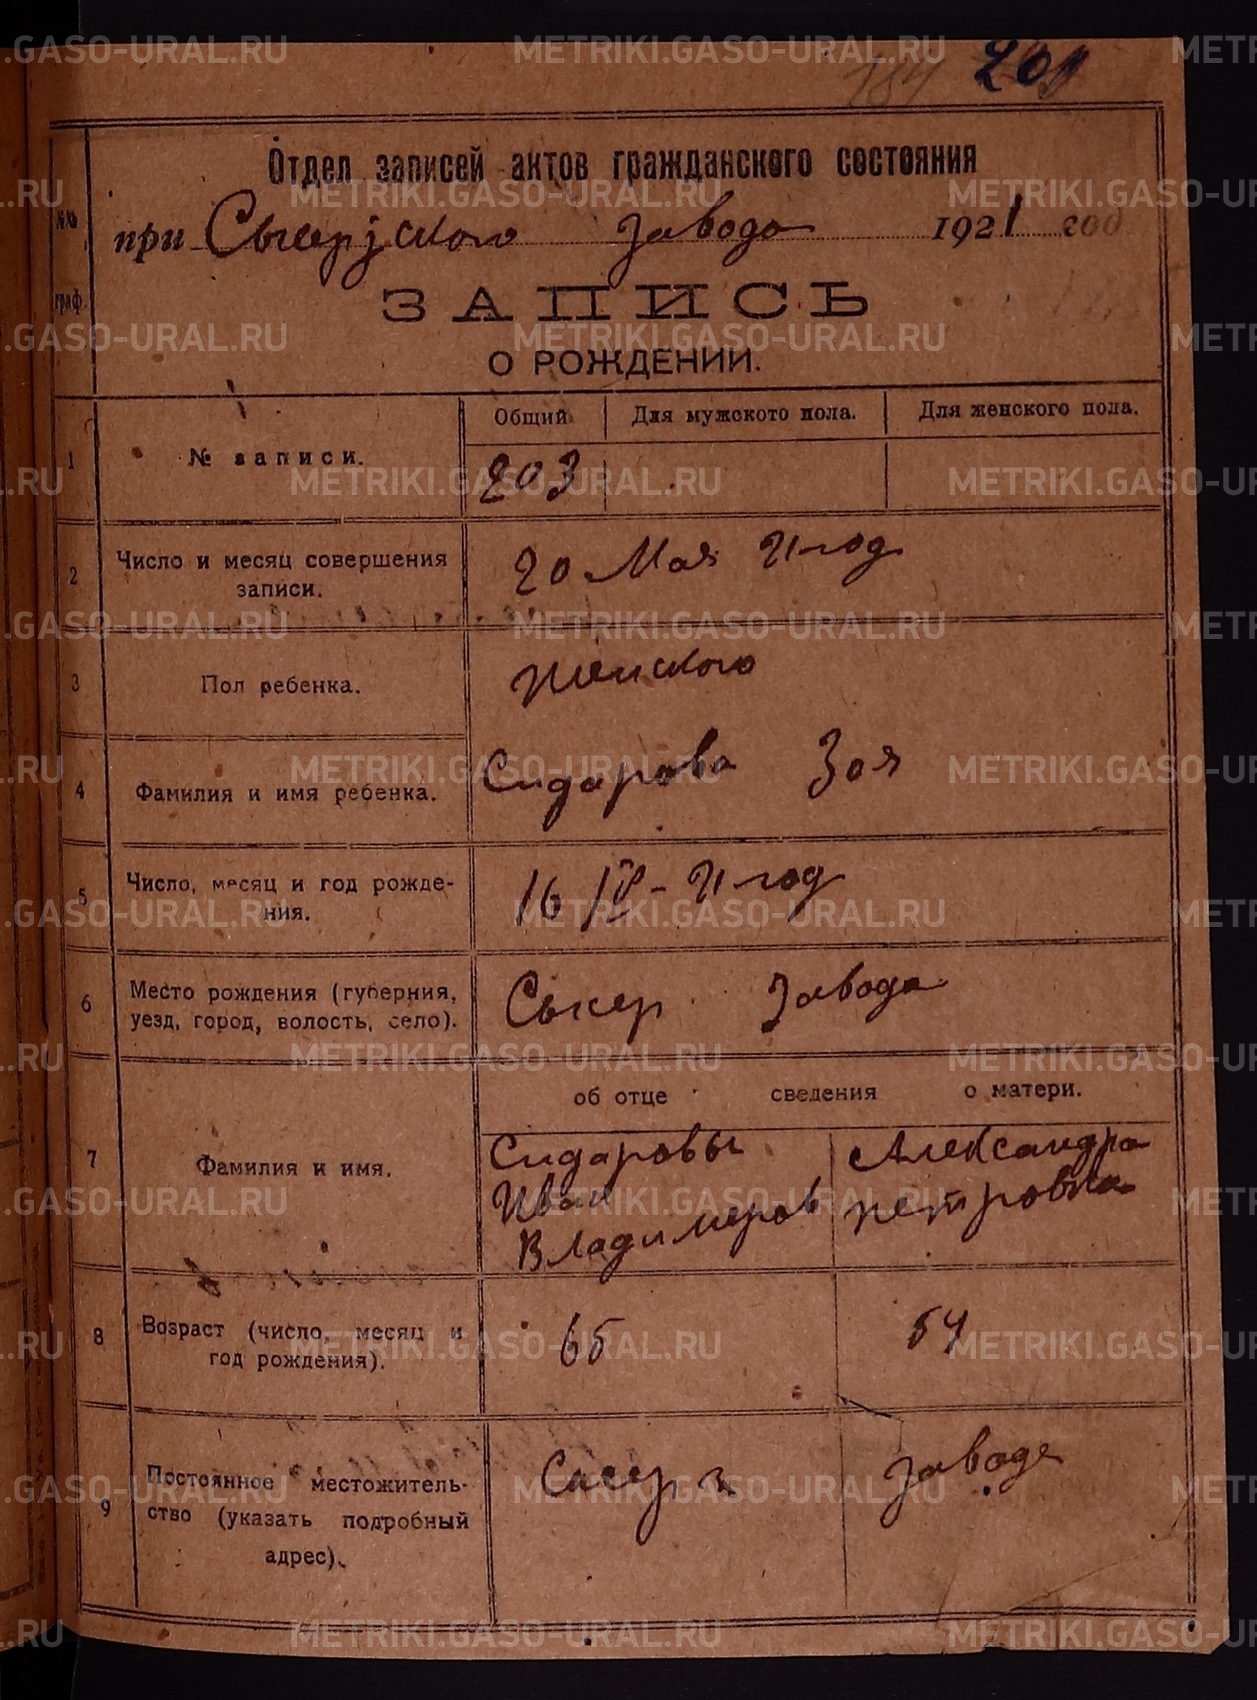 184 201
Отдел записей актов гражданского состояния
при Сысерţского завода 1921 год
№№
граф.
ЗАПИСЬ
О РОЖДЕНИИ.
Общий Для мужского пола. Для женского пола.
1 № записи. 203
2 Число и месяц совершения записи. 20 Мая 21 год
3 Пол ребенка. Женского
4 Фамилия и имя ребенка. Сидарова Зоя
5 Число, месяц и год рожде-
ния. 16/IV - 21 год
6 Место рождения (губерния,
уезд, город, волость, село). Сысер завода
об отце сведения о матери.
7 Фамилия и имя. Сидаровы Александра
Иван Петровна
Владимеров
8 Возраст (число, месяц и
год рождения). 65 54
9 Постоянное местожитель-
ство (указать подробный
адрес). Сысер з заводе
METRIKI.GASO-URAL.RU